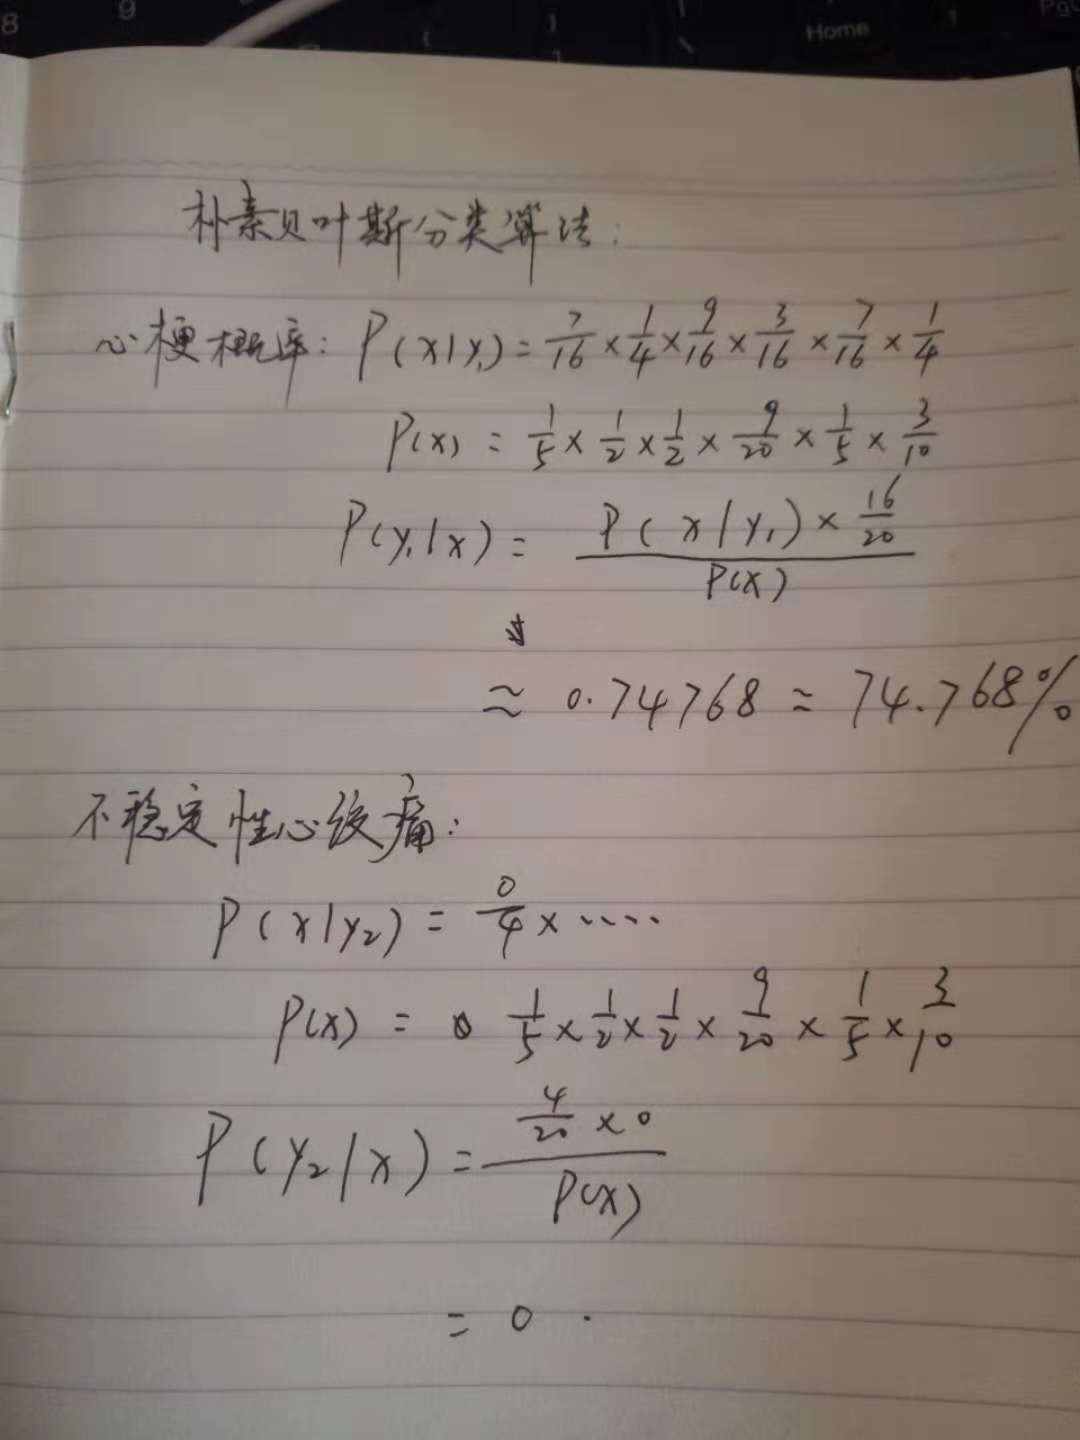 8 9 Home
朴素贝叶斯分类算法:
心梗概率: P(x|y₁) = 7/16 × 1/4 × 9/16 × 3/16 × 7/16 × 1/4
P(x) = 1/5 × 1/2 × 1/2 × 9/20 × 1/5 × 3/10
P(y₁|x) = P(x|y₁) × 16/20 / P(x)
≈ 0.74768 = 74.768%
不稳定性心绞痛:
P(x|y₂) = 0/4 × ····
P(x) = 1/5 × 1/2 × 1/2 × 9/20 × 1/5 × 3/10
P(y₂|x) = 4/20 × 0 / P(x)
= 0 .